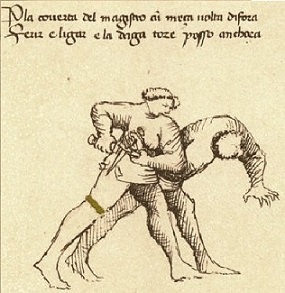 P la coverta del magistro cū meça volta di fora
Ferir e ligar e la daga tore posso anchora